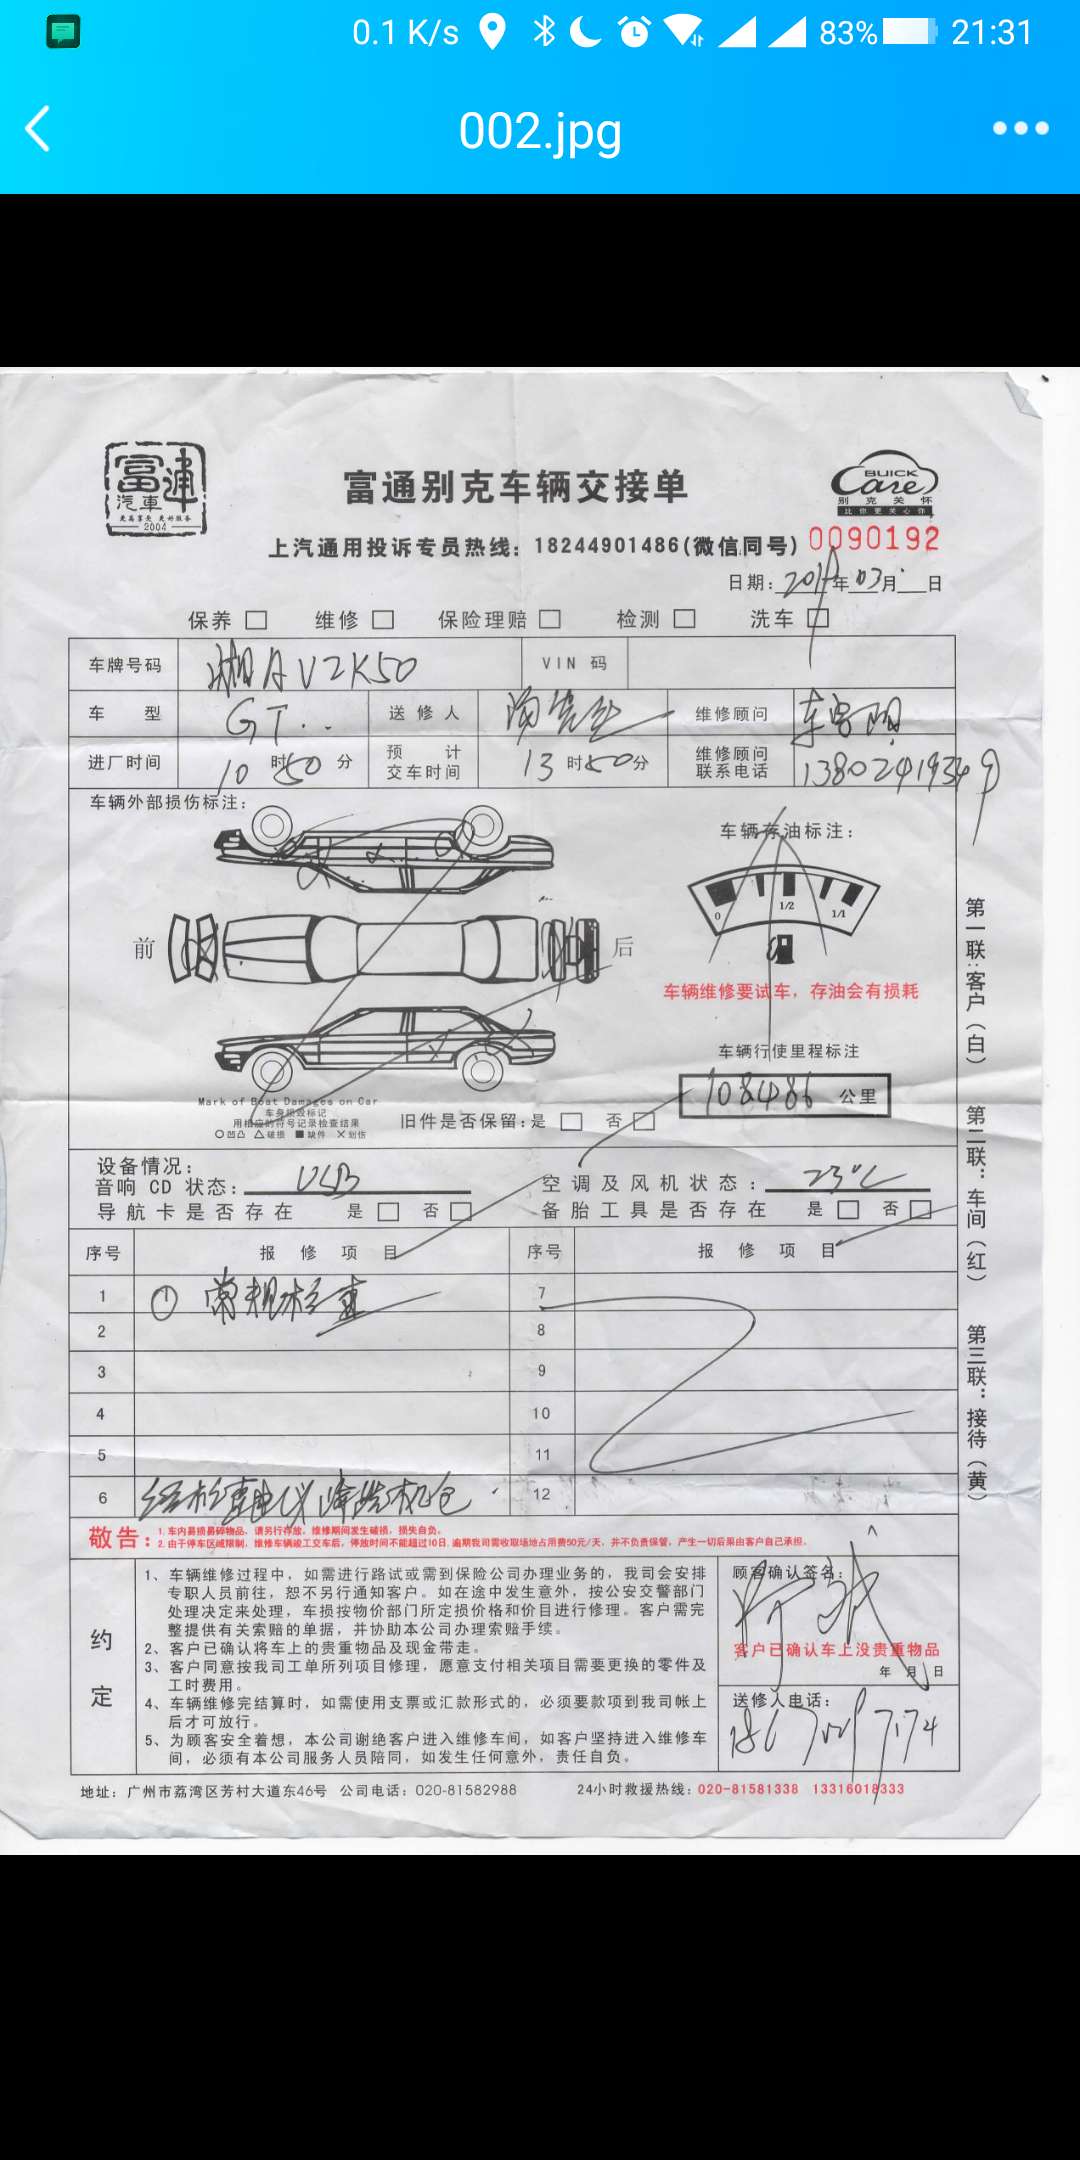 0.1 K/s 83% 21:31
002.jpg
富通
汽車
2004
富通别克车辆交接单
BUICK
Care
别克关怀
比你更关心你
上汽通用投诉专员热线：18244901486(微信同号)
0090192
日期： 年 03 月 日
保养 □ 维修 □ 保险理赔 □ 检测 □ 洗车 □
车牌号码 湘A V2K50 VIN 码
车 型 GT.. 送修人 维修顾问
进厂时间 10 时 50 分 预计交车时间 13 时 50 分 维修顾问联系电话 13802419349
车辆外部损伤标注：
车辆存油标注：
0 1/2 1/1
前
后
车辆维修要试车，存油会有损耗
车辆行使里程标注
108486 公里
Mark of Boat Damages on Car
车身损毁标记
用相应的符号记录检查结果
○凹凸 △破损 ■缺件 ×划伤
旧件是否保留：是 □ 否 □
设备情况：
音响 CD 状态： USB 空调及风机状态： 23℃
导航卡是否存在 是 □ 否 □ 备胎工具是否存在 是 □ 否 □
序号 报修项目 序号 报修项目
1 ① 常规检查 7
2 8
3 9
4 10
5 11
6 经检查 12
敬告：
1. 车内易损易碎物品，请另行存放，维修期间发生破损，损失自负。
2. 由于停车区域限制，维修车辆竣工交车后，停放时间不能超过10日，逾期我司需收取场地占用费50元/天，并不负责保管，产生一切后果由客户自己承担。
约定
1、车辆维修过程中，如需进行路试或需到保险公司办理业务的，我司会安排
专职人员前往，恕不另行通知客户。如在途中发生意外，按公安交警部门
处理决定来处理，车损按物价部门所定损价格和价目进行修理。客户需完
整提供有关索赔的单据，并协助本公司办理索赔手续。
2、客户已确认将车上的贵重物品及现金带走。
3、客户同意按我司工单所列项目修理，愿意支付相关项目需要更换的零件及
工时费用。
4、车辆维修完结算时，如需使用支票或汇款形式的，必须要款项到我司帐上
后才可放行。
5、为顾客安全着想，本公司谢绝客户进入维修车间，如客户坚持进入维修车
间，必须有本公司服务人员陪同，如发生任何意外，责任自负。
顾客确认签名：
客户已确认车上没贵重物品
年 月 日
送修人电话：
地址：广州市荔湾区芳村大道东46号 公司电话：020-81582988 24小时救援热线：020-81581338 13316018333
第一联：客户（白） 第二联：车间（红） 第三联：接待（黄）